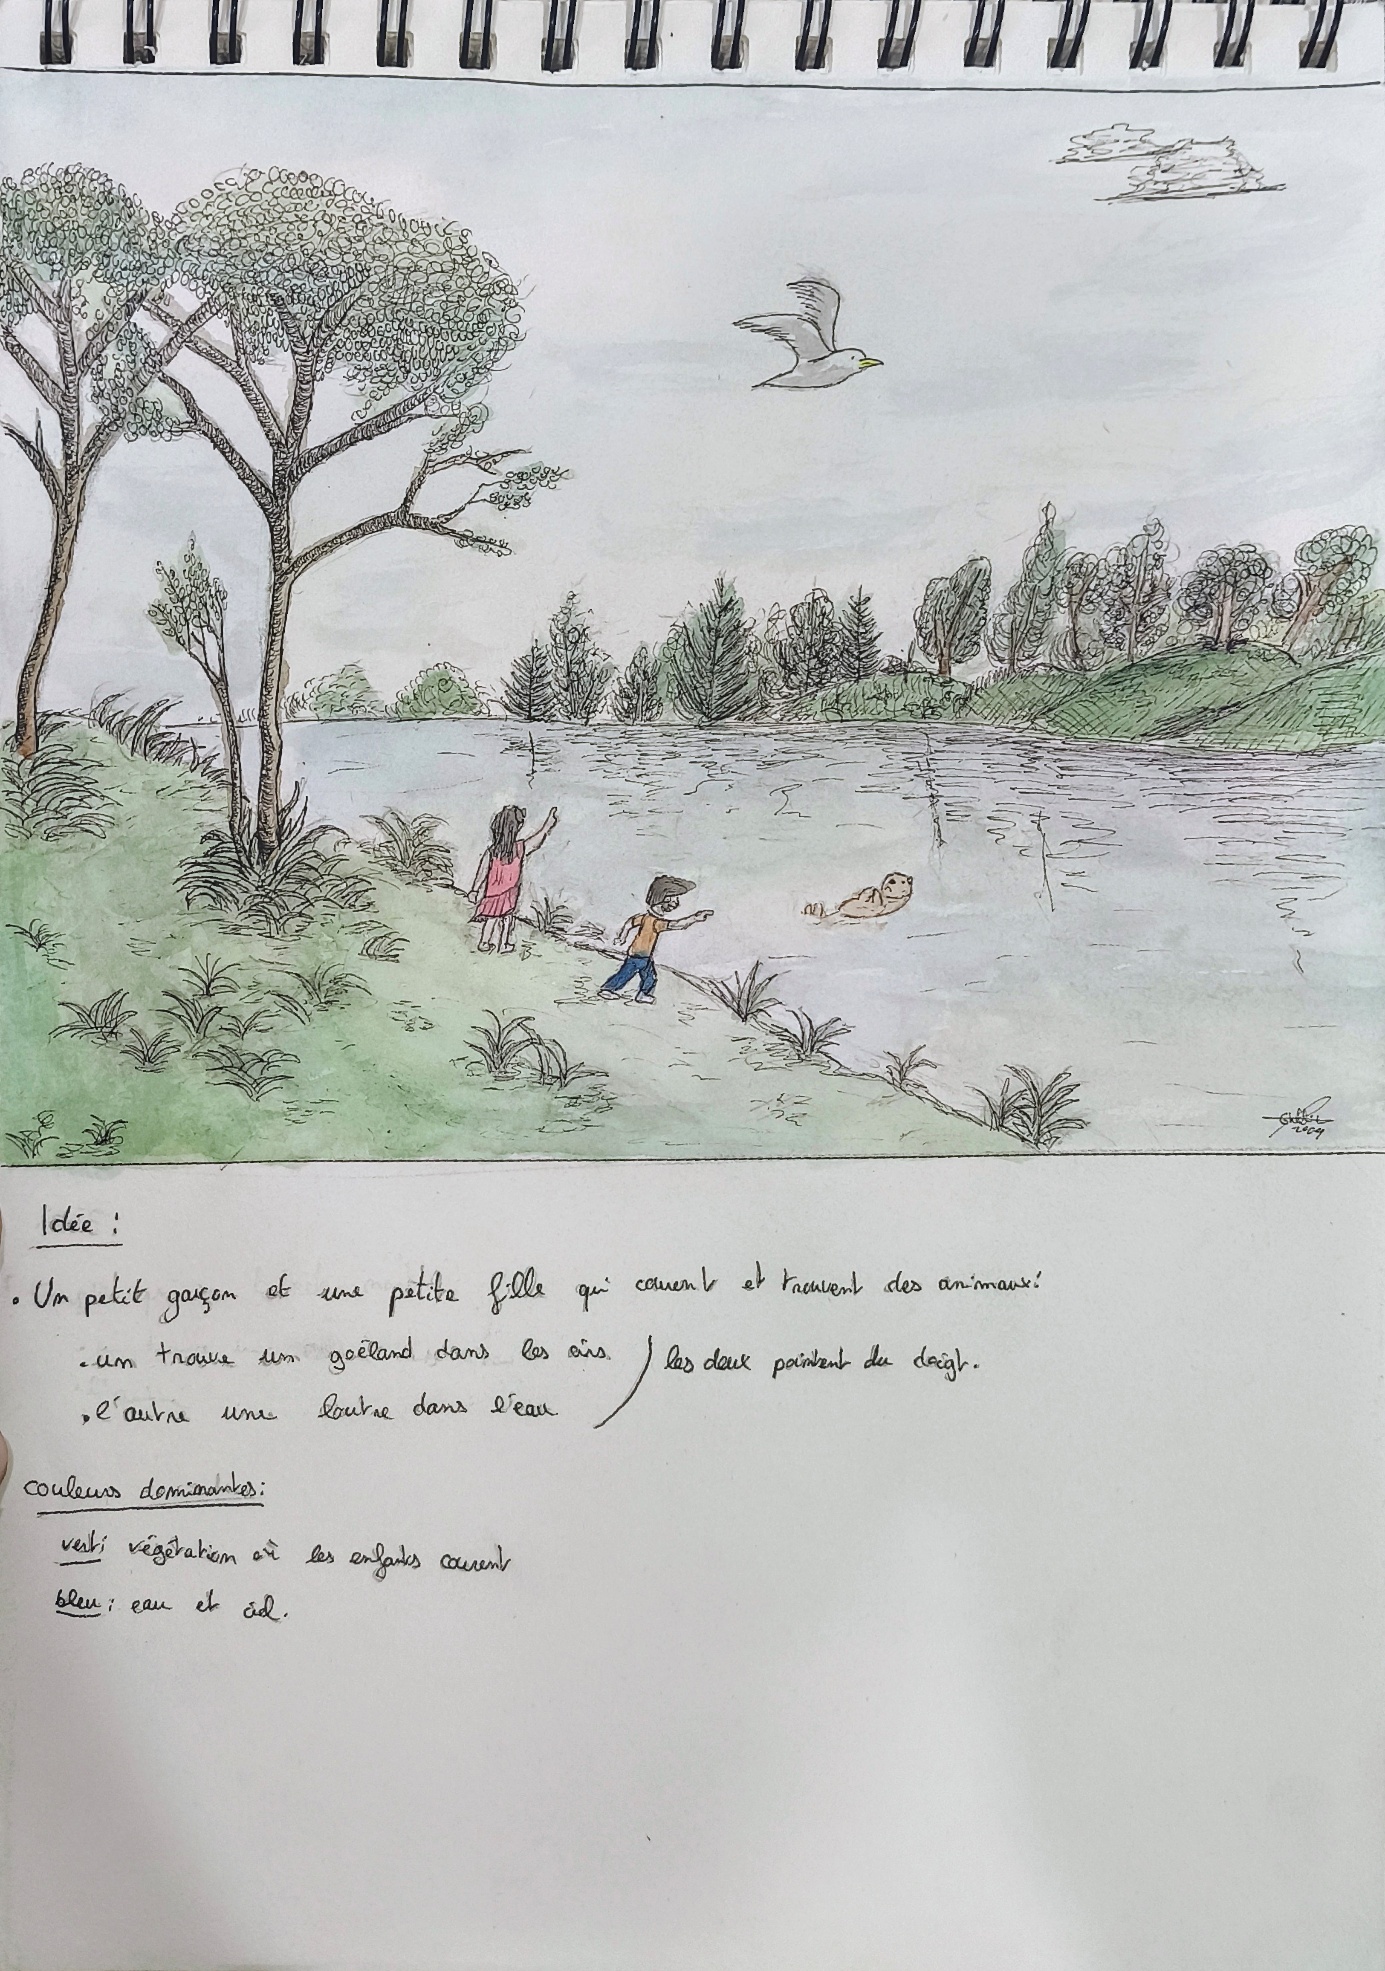 Idée :
. Un petit garçon et une petite fille qui courent et trouvent des animaux:
. un trouve un goëland dans les airs
. l'autre une loutre dans l'eau
les deux pointent du doigt.
couleurs dominantes:
vert: végétation où les enfants courent
bleu: eau et ciel.